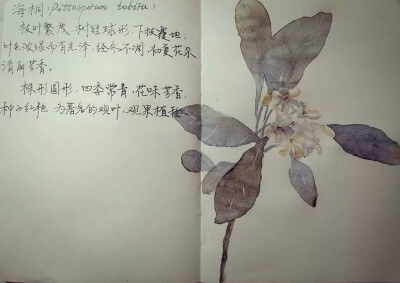 海桐(Pittosporum tobira)
枝叶繁茂,树冠球形,下枝覆地;
叶色浓绿而有光泽,经冬不凋,初夏花朵
清丽芳香。
株形圆形,四季常青,花味芳香,
种子红色,为著名的观叶、观果植物